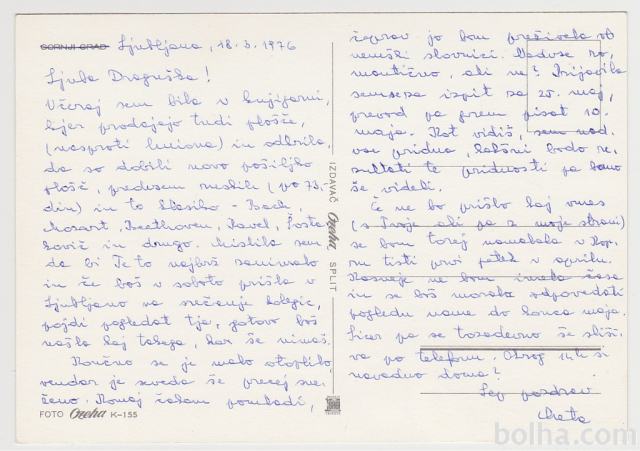 GORNJI GRAD Ljubljana, 18. 3. 1976
Ljuba Draguška!
Včeraj sem bila v knjigarni,
kjer prodajajo tudi plošče,
(nasproti Uniona) in odkrila,
da so dobili novo pošiljko
plošč, predvsem ruskih (po 73,
din) in to klasiko - Bach,
Mozart, Beethoven, Ravel, Šosta
kovič in drugo. Mislila sem
da bi Te to najbrž zanimalo
in če boš v soboto prišla v
Ljubljano na srečanje kolegic,
pojdi pogledat tja, gotovo boš
našla kaj takega, kar še nimaš.
Končno se je malo otoplilo
vendar je seveda še precej sne
ženo. Komaj čakam pomladi,
FOTO Ozeha K-155
IZDAVAČ Ozeha SPLIT
čeprav jo bom preživela ob
nemški slovnici. Nadvse ro,
mantično, ali ne? Prijavila
sem se za izpit za 25. maj,
prevod pa grem pisat 10.
maja. Kot vidiš, sem nad
vse pridna, kakšni bodo re,
zultati te pridnosti pa bomo
še videli.
Če ne bo prišlo kaj vmes
(s Tvoje ali pa z moje strani)
se bom torej namahala v Kop,
ru tisti prvi petek v aprilu.
Kasneje ne bom imela časa
in se boš morala odpovedati
pogledu name do konca maja.
Sicer pa se tozadevno še sliši,
va po telefonu. Okrog 14h si
navadno doma?
Lep pozdrav
Meta
bolha.com